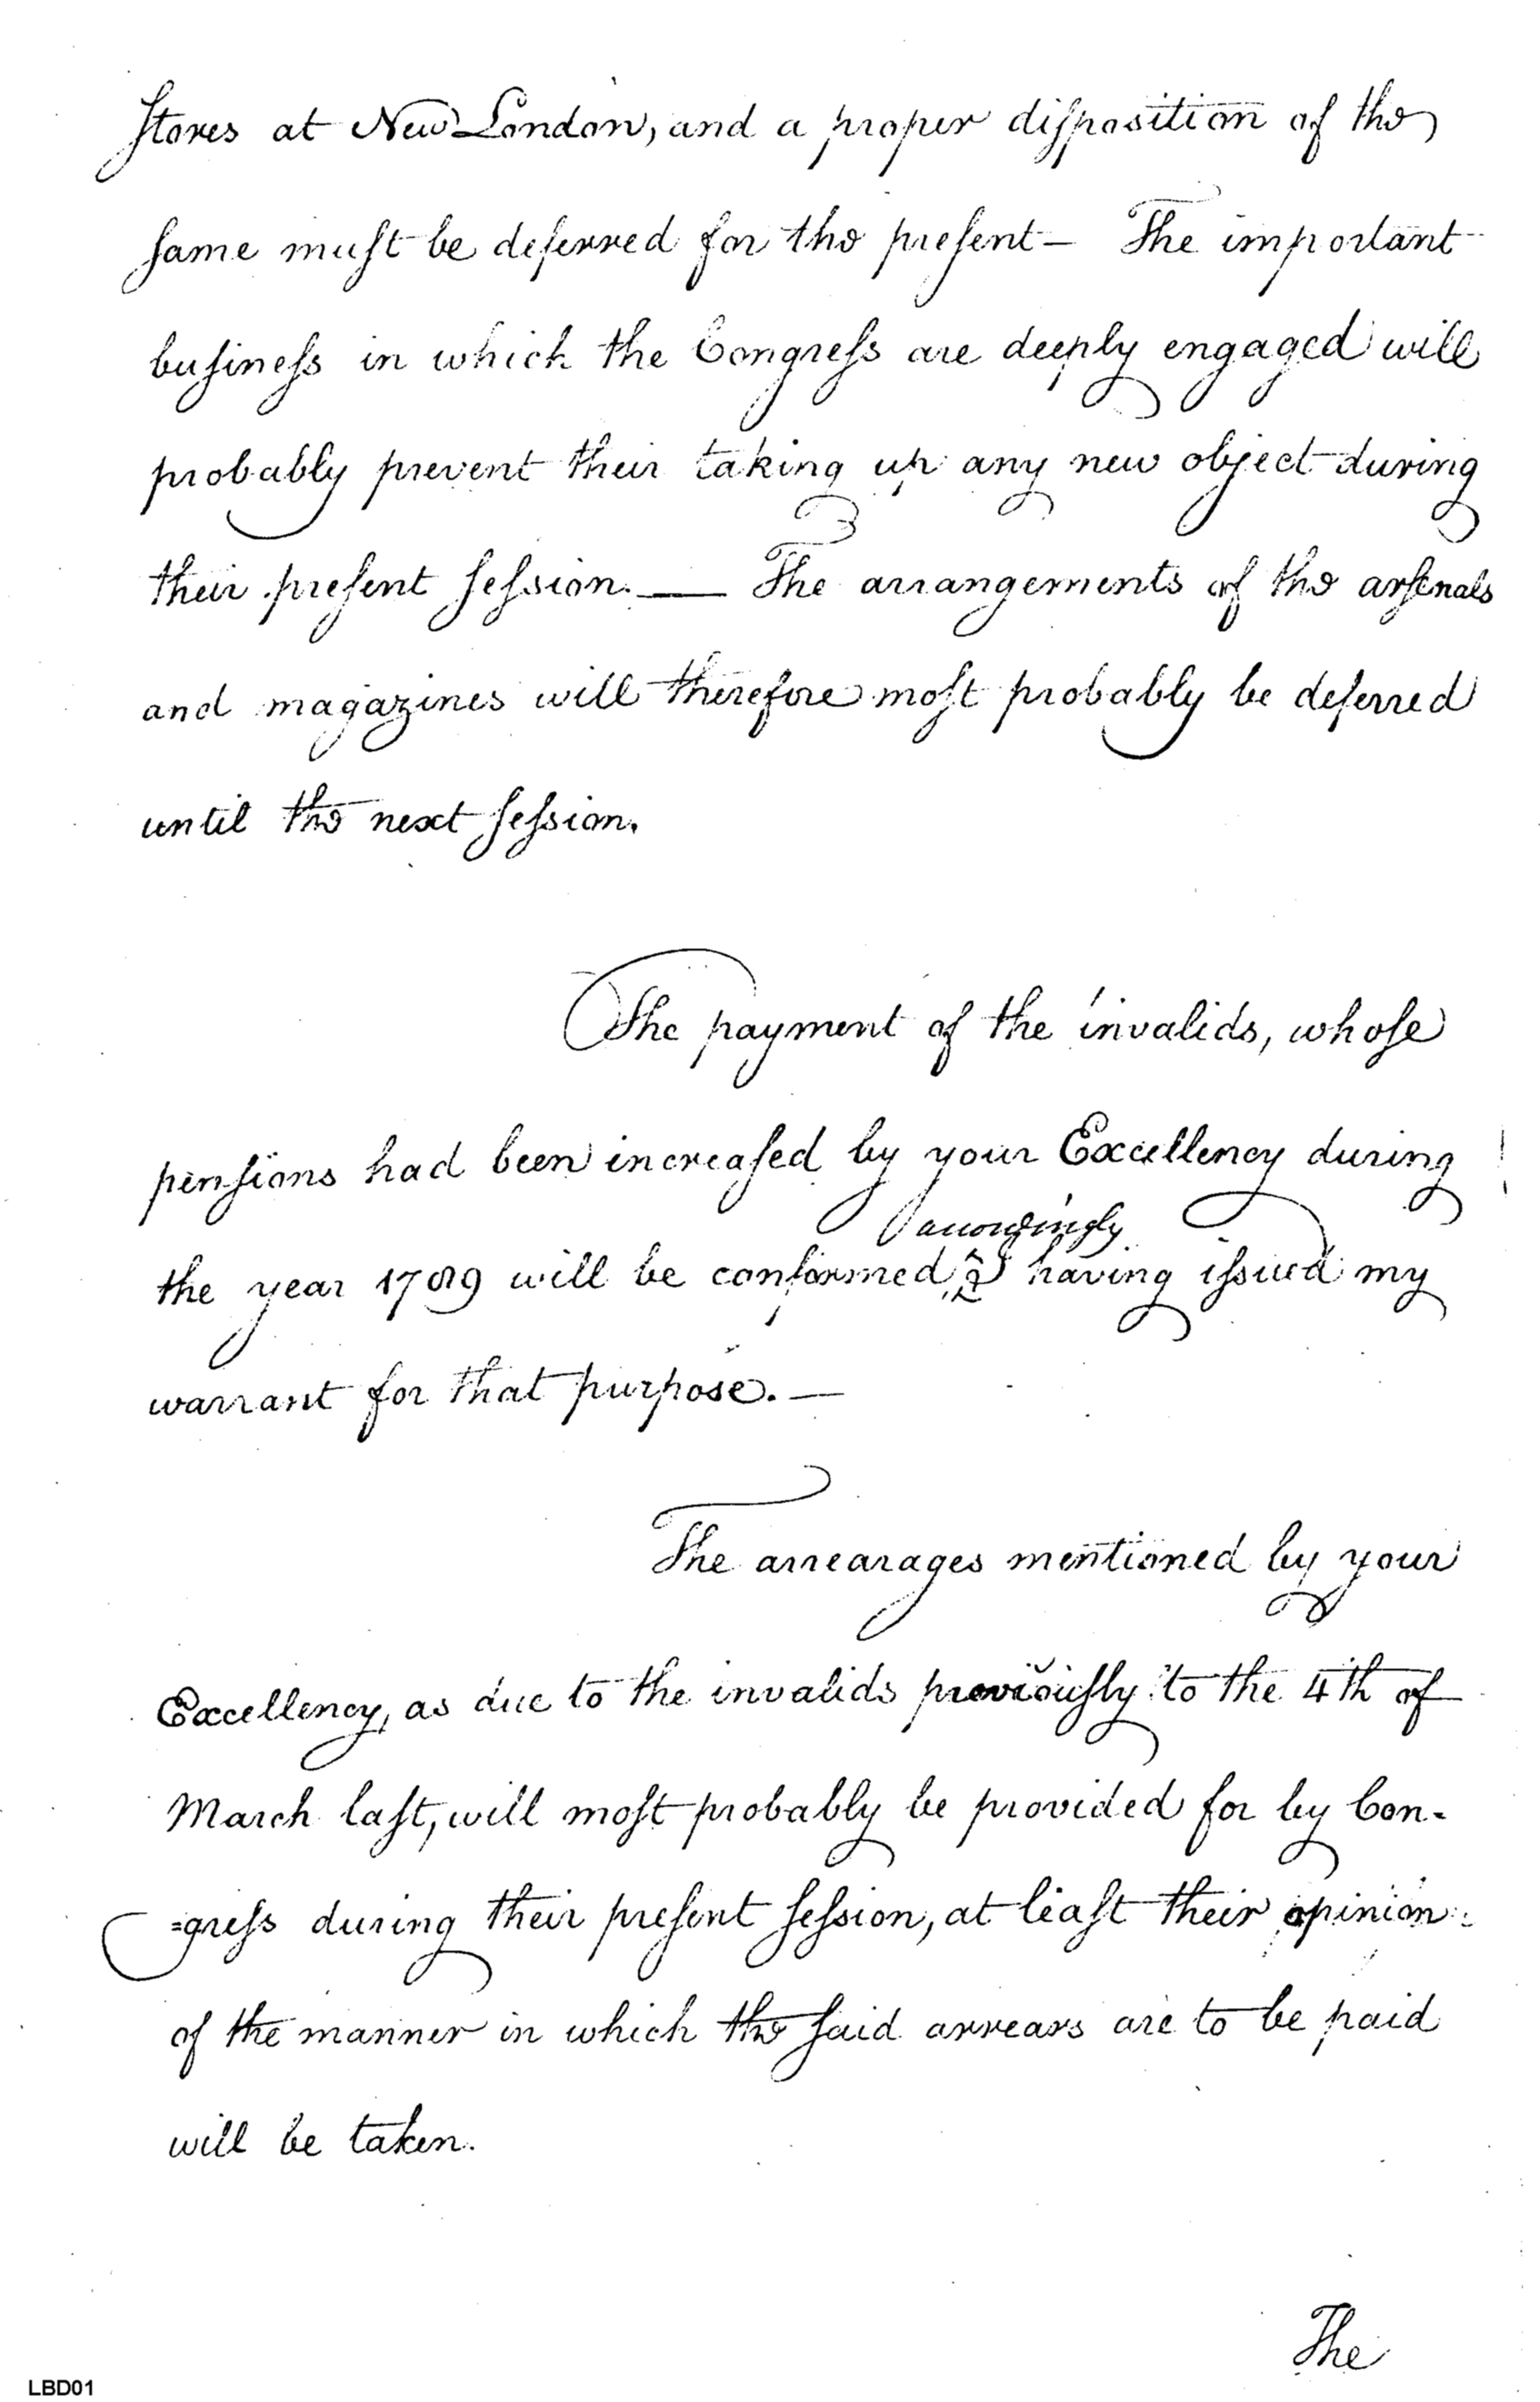 stores at New London, and a proper disposition of the
same must be deferred for the present — The important
business in which the Congress are deeply engaged will
probably prevent their taking up any new object during
their present session. — The arrangements of the arsenals
and magazines will therefore most probably be deferred
until the next session.
The payment of the invalids, whose
pensions had been increased by your Excellency during
accordingly
the year 1789 will be confirmed, having issued my
warrant for that purpose. —
The arrearages mentioned by your
Excellency, as due to the invalids previously to the 4th of
March last, will most probably be provided for by Con-
=gress during their present session, at least their opinion
of the manner in which the said arrears are to be paid
will be taken.
The
LBD01